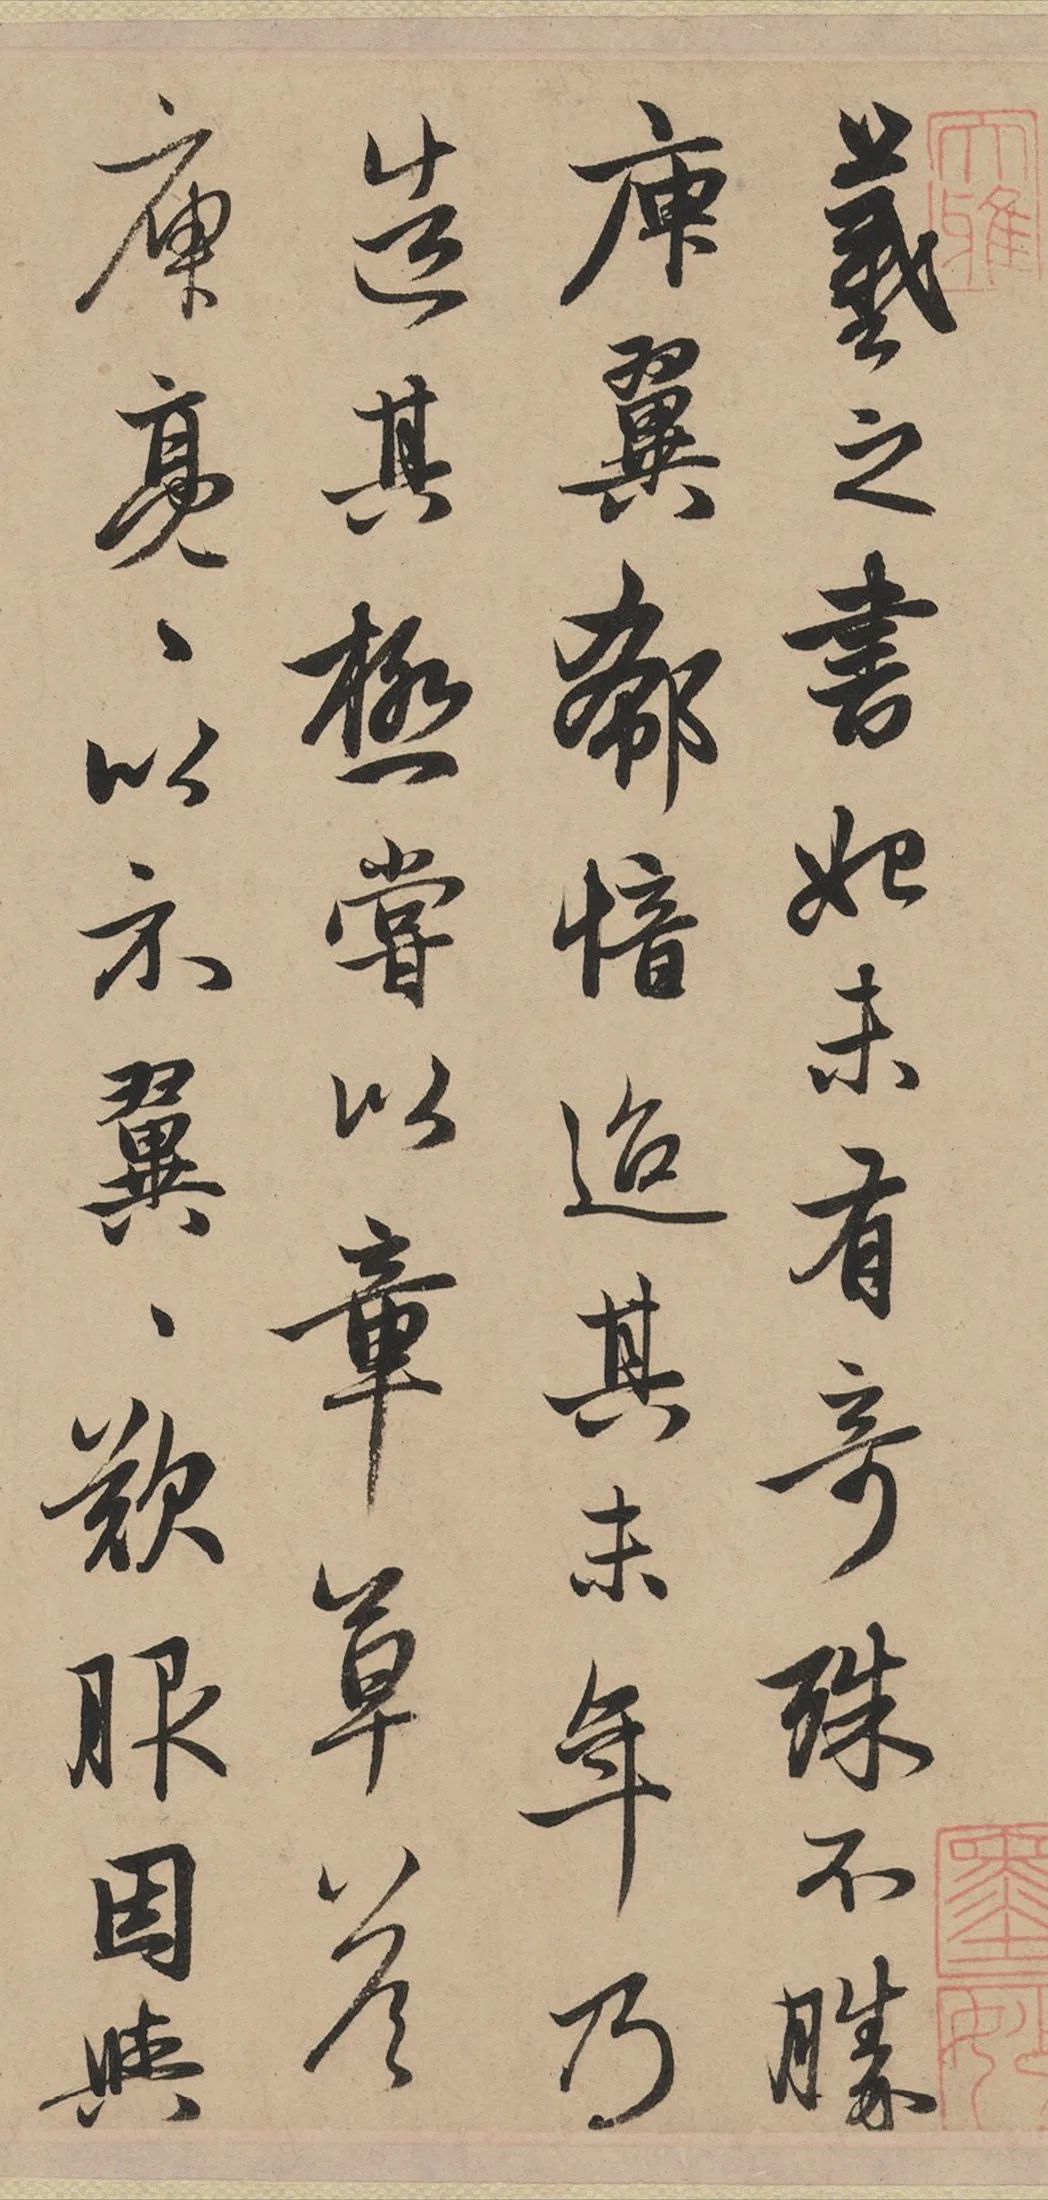 羲之書始未有奇殊不勝
庾翼郗愔迨其末年乃
造其極嘗以章草荅
庾亮、以示翼、歎服因與
大雅
墨妙